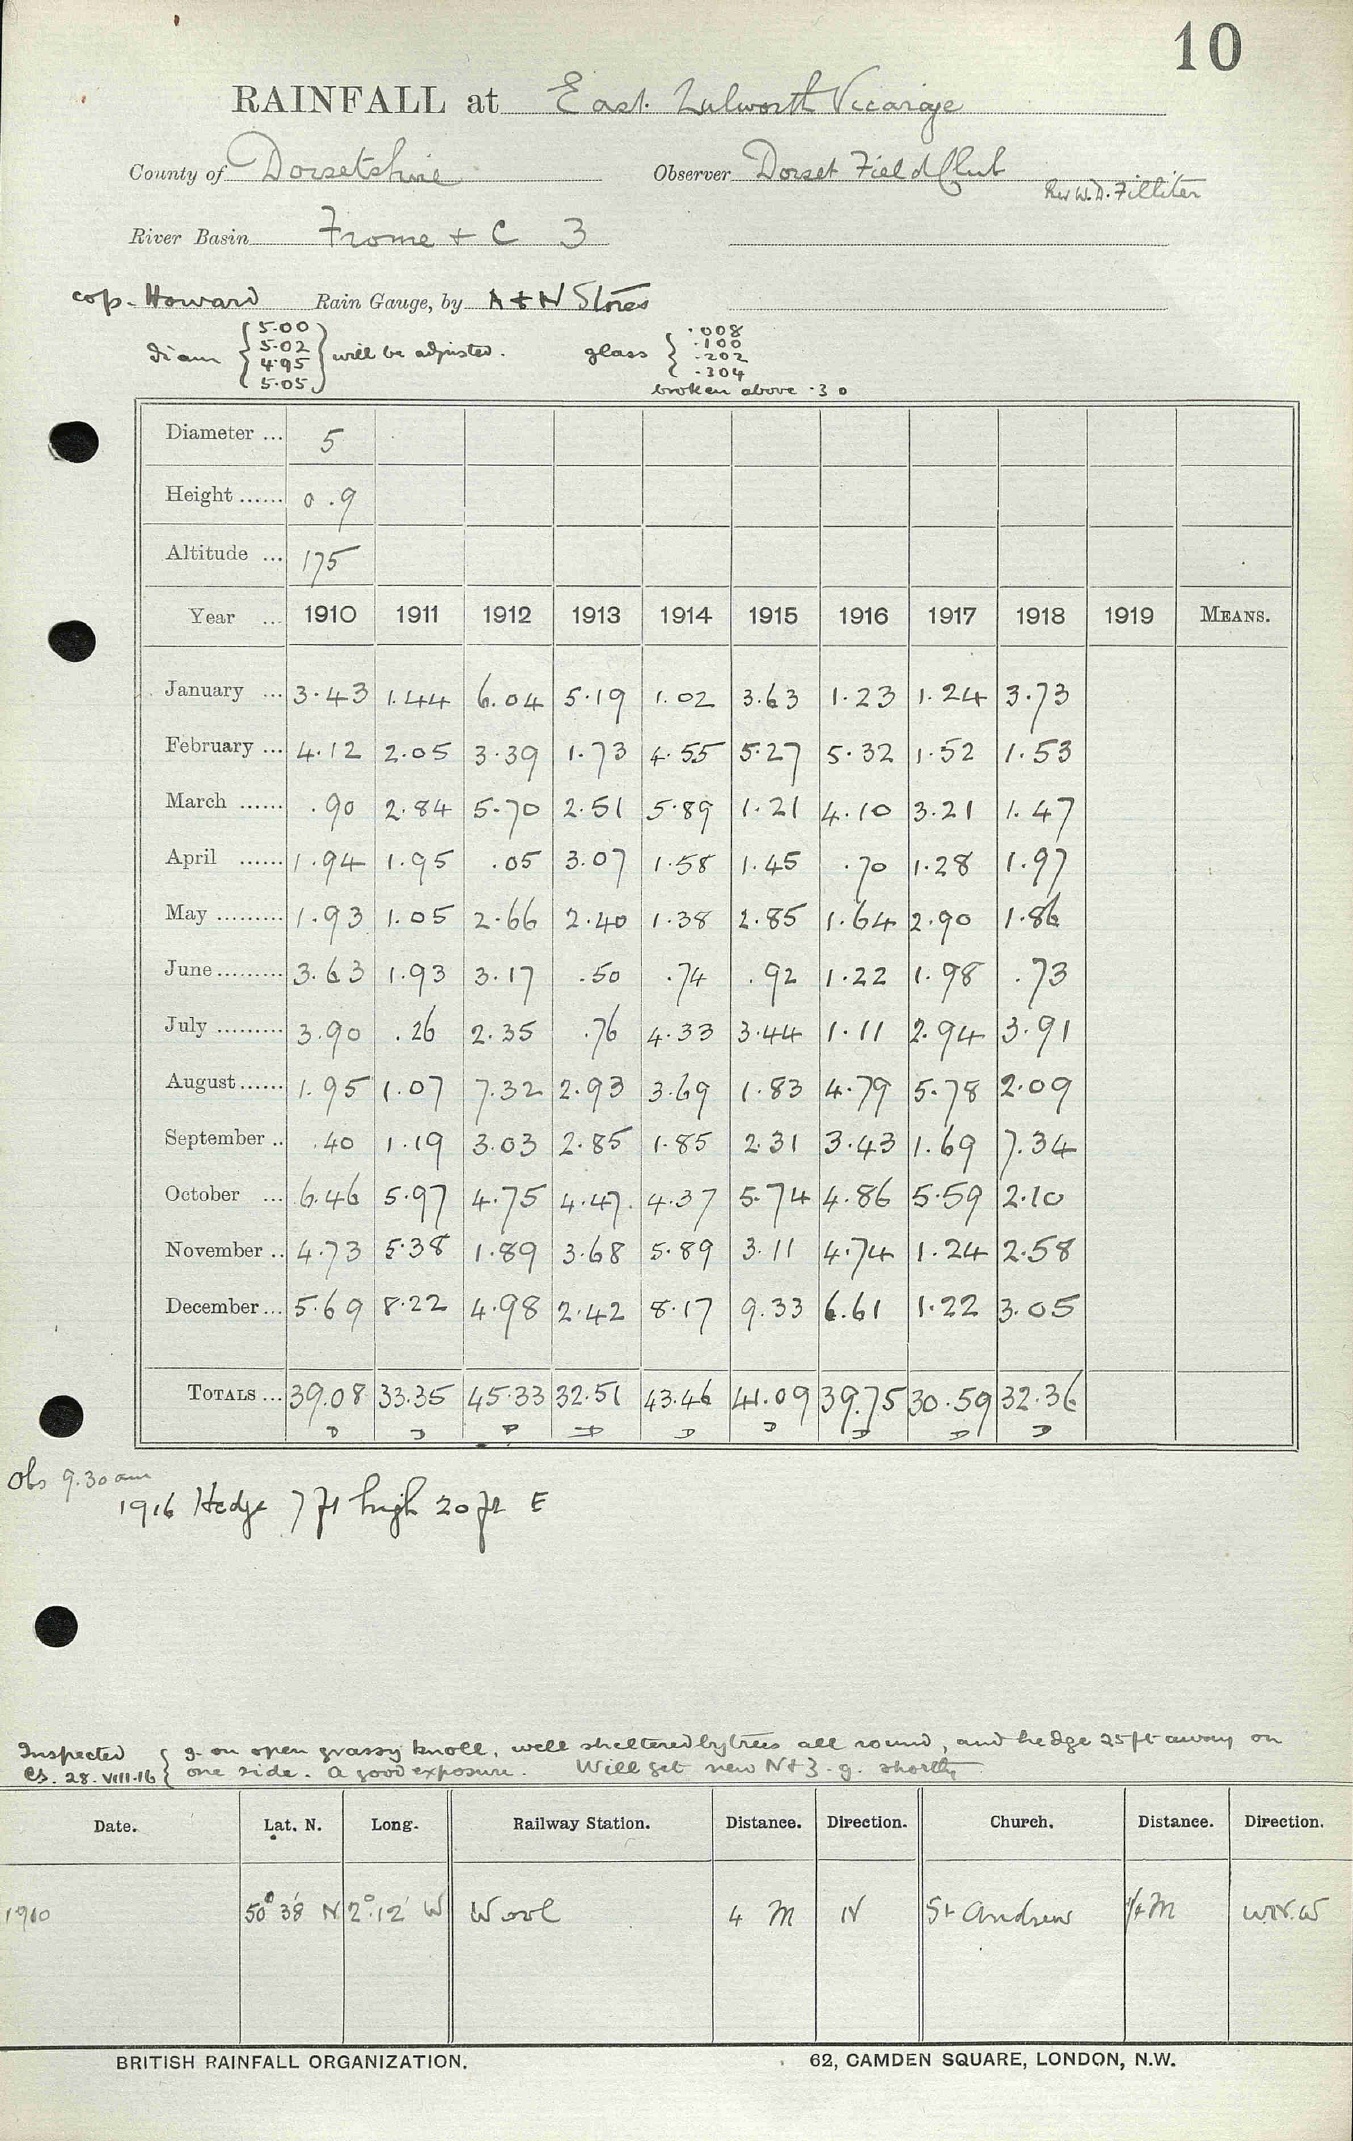 10
RAINFALL at East Lulworth Vicarage
County of Dorsetshire Observer Dorset Field Club
Rev W.D. Filliter
River Basin Frome + C 3
cop. Howard Rain Gauge, by A + N Stores
diam { 5.00 5.02 4.95 5.05 } will be adjusted. glass { .008 .100 .202 .304
broken above .30
Diameter ... 5
Height ...... 0.9
Altitude ... 175
Year ... 1910 1911 1912 1913 1914 1915 1916 1917 1918 1919 MEANS.
January ... 3.43 1.44 6.04 5.19 1.02 3.63 1.23 1.24 3.73
February ... 4.12 2.05 3.39 1.73 4.55 5.27 5.32 1.52 1.53
March ...... .90 2.84 5.70 2.51 5.89 1.21 4.10 3.21 1.47
April ...... 1.94 1.95 .05 3.07 1.58 1.45 .70 1.28 1.97
May ......... 1.93 1.05 2.66 2.40 1.38 2.85 1.64 2.90 1.86
June ......... 3.63 1.93 3.17 .50 .74 .92 1.22 1.98 .73
July ......... 3.90 .26 2.35 .76 4.33 3.44 1.11 2.94 3.91
August ...... 1.95 1.07 7.32 2.93 3.69 1.83 4.79 5.78 2.09
September .. .40 1.19 3.03 2.85 1.85 2.31 3.43 1.69 7.34
October ... 6.46 5.97 4.75 4.47 4.37 5.74 4.86 5.59 2.10
November .. 4.73 5.38 1.89 3.68 5.89 3.11 4.74 1.24 2.58
December ... 5.69 8.22 4.98 2.42 8.17 9.33 6.61 1.22 3.05
TOTALS ... 39.08 33.35 45.33 32.51 43.46 41.09 39.75 30.59 32.36
D D D D D D D D D
Obs 9.30 am
1916 Hedge 7 ft high 20 ft E
Inspected { g. on open grassy knoll, well sheltered by trees all round, and hedge 25 ft away on
CS. 28.VIII.16 { one side. A good exposure. Will get new N+Z. g. shortly
Date. Lat. N. Long. Railway Station. Distance. Direction. Church. Distance. Direction.
1910 50° 38' N 2° 12' W Wool 4 M N St Andrew 1/4 M W.N.W
BRITISH RAINFALL ORGANIZATION. 62, CAMDEN SQUARE, LONDON, N.W.